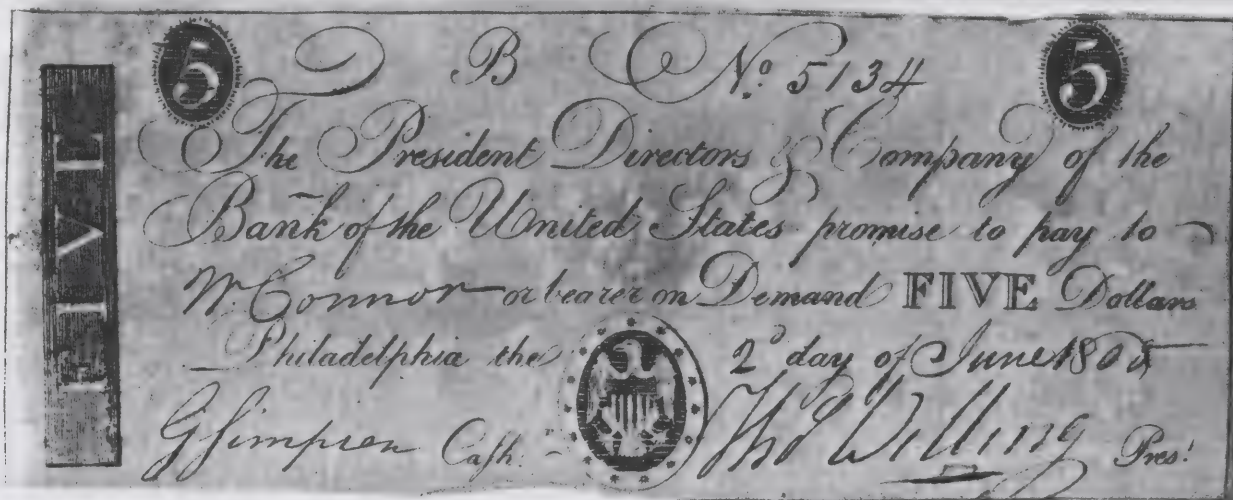 5 B Nº 5134 5
The President Directors & Company of the
Bank of the United States promise to pay to
or bearer on Demand FIVE Dollars
Philadelphia the 2d day of June
G Simpson Cash. Tho Willing Pres!
FIVE